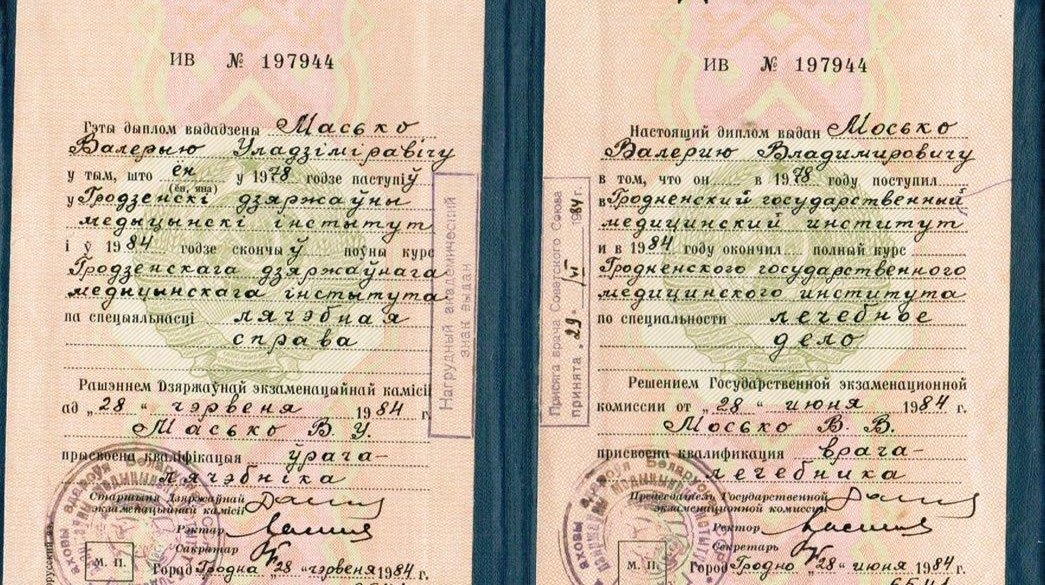 ИВ № 197944
Гэты дыплом выдадзены Масько
Валерыю Уладзіміравічу
у тым, што ён у 1978 годзе паступіў
(ён, яна)
у Гродзенскі дзяржаўны
медыцынскі інстытут
і ў 1984 годзе скончыў поўны курс
Гродзенскага дзяржаўнага
медыцынскага інстытута
па спецыяльнасці лячэбная
справа
Рашэннем Дзяржаўнай экзаменацыйнай камісіі
ад „28“ чэрвеня 1984 г.
Масько В. У.
прысвоена кваліфікацыя ўрача-
лячэбніка
Старшыня Дзяржаўнай
экзаменацыйнай камісіі
Рэктар
Сакратар
М. П.
Горад Гродна „28“ чэрвеня 1984 г.
Нагрудный академический
знак выдан
ИВ № 197944
Настоящий диплом выдан Мосько
Валерию Владимировичу
в том, что он в 1978 году поступил
в Гродненский государственный
медицинский институт
и в 1984 году окончил полный курс
Гродненского государственного
медицинского института
по специальности лечебное
дело
Решением Государственной экзаменационной
комиссии от „28“ июня 1984 г.
Мосько В. В.
присвоена квалификация врача-
лечебника
Председатель Государственной
экзаменационной комиссии
Ректор
Секретарь
М. П.
Город Гродно „28“ июня 1984 г.
Присяга врача Советского Союза
принята „29“ VI 1984 г.